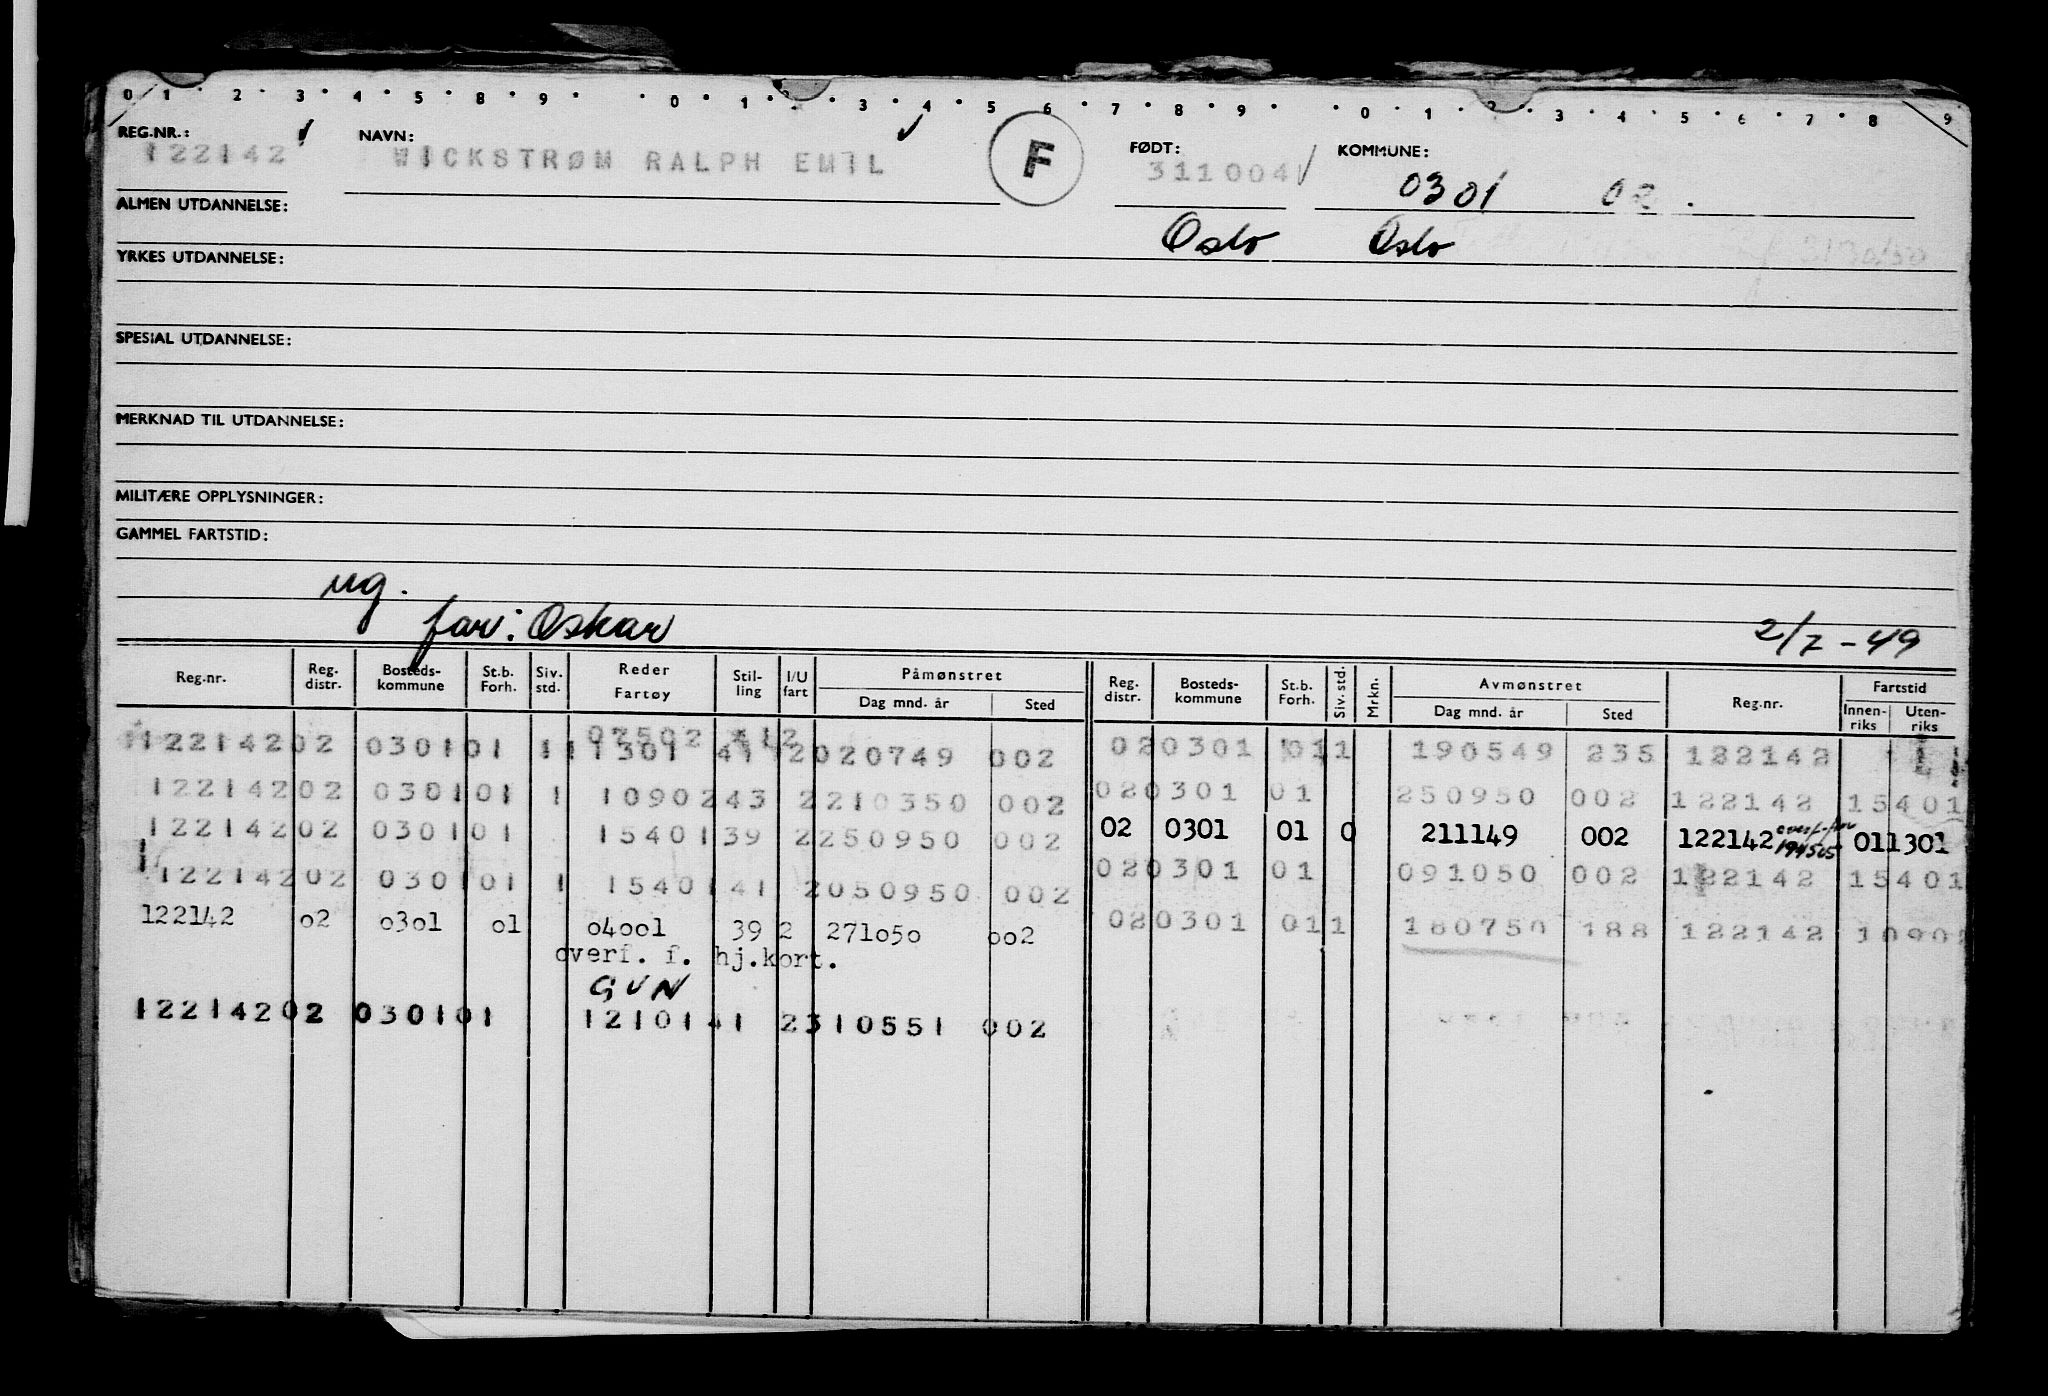 0 1 2 3 4 5 8 9 0 1 2 3 4 5 6 7 8 9 0 1 2 3 4 5 6 7 8 9
REG.NR.: NAVN: FØDT: KOMMUNE:
122142 WICKSTRØM RALPH EMIL F 311004 0301 02
ALMEN UTDANNELSE: Oslo Oslo
YRKES UTDANNELSE:
SPESIAL UTDANNELSE:
MERKNAD TIL UTDANNELSE:
MILITÆRE OPPLYSNINGER:
GAMMEL FARTSTID:
ug.
far: Oskar 2/7-49
Reg.nr. Reg. distr. Bosteds-kommune St.b. Forh. Siv. std. Reder Fartøy Stil-ling I/U fart Påmønstret Dag mnd. år Sted Reg. distr. Bosteds-kommune St.b. Forh. Siv. std. Mrkn. Avmønstret Dag mnd. år Sted Reg.nr. Fartstid Innen-riks Uten-riks
02502
122142 02 0301 01 1 11301 41 2 020749 002 02 0301 01 1 190549 235 122142
122142 02 0301 01 1 10902 43 2 210350 002 02 0301 01 250950 002 122142 15401
122142 02 0301 01 15401 39 2 250950 002 02 0301 01 0 211149 002 122142 overf. fra 194505 011301
122142 02 0301 01 1 15401 41 2 050950 002 02 0301 01 091050 002 122142 15401
122142 o2 o3ol ol o4ool 39 2 271o5o oo2 02 0301 01 1 180750 188 122142 1090
overf. f. hj.kort.
GUN
122142 02 0301 01 12101 41 2 310551 002